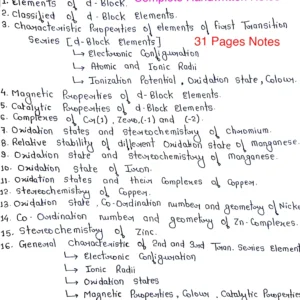 1. Elements of d-Block.
2. Classified of d-Block Elements.
3. Characteristic Properties of elements of First Transition
Series [d-Block Elements] 31 Pages Notes
↳ Electronic Configuration
↳ Atomic and Ionic Radii
↳ Ionization Potential, Oxidation state, Colour.
4. Magnetic Properties of d-Block Elements.
5. Catalytic Properties of d-Block Elements.
6. Complexes of Cr(1), Zero,(-1) and (-2).
7. Oxidation states and stereochemistry of chromium.
8. Relative stability of different Oxidation state of manganese.
9. Oxidation state and stereochemistry of manganese.
10. Oxidation state of Iron.
11. Oxidation states and their Complexes of Copper.
12. Stereochemistry of Copper.
13. Oxidation state, Co-Ordination number and geometry of Nicke
14. Co-Ordination number and geometry of Zn-Complexes.
15. Stereochemistry of Zinc.
16. General Characteristic of 2nd and 3rd Tran. Series Element
↳ Electronic Configuration
↳ Ionic Radii
↳ Oxidation states
↳ Magnetic Properties, Colour, Catalytic Properties